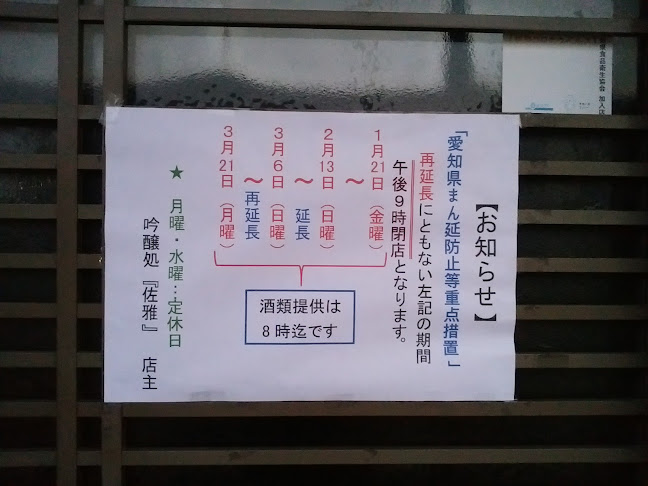 【お知らせ】
「愛知県まん延防止等重点措置」
再延長にともない左記の期間
午後9時閉店となります。
1月21日(金曜)
～
2月13日(日曜)
～延長
3月6日(日曜)
～再延長
3月21日(月曜)
酒類提供は
8時迄です
★ 月曜・水曜…定休日
吟醸処『佐雅』 店主
食品衛生協会 加入店